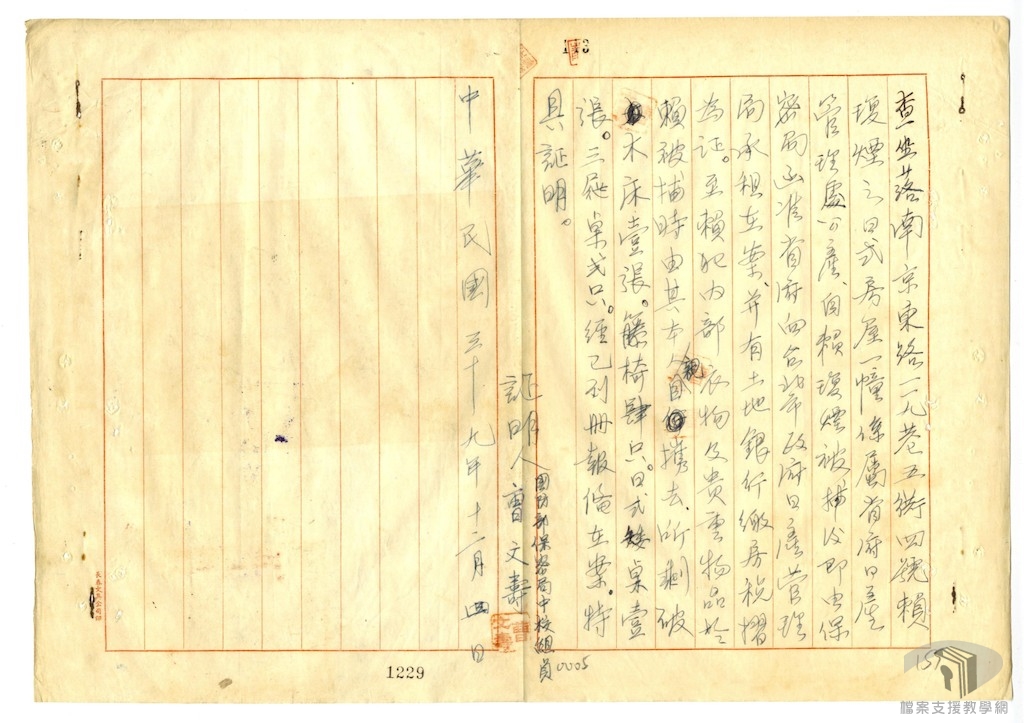 查坐落南京東路一二九巷五街四號賴
瓊煙之日式房屋一幢係屬省府日產
管理處公產、自賴瓊煙被捕後即由保
密局函准省府向台北市政府日產管理
局承租在案、并有土地銀行繳房稅摺
為証。至賴犯內部衣物及貴重物品於
賴被捕時由其本人親自攜去、所剩破
木床壹張。籐椅肆只。日式矮桌壹
張。三屜桌弍只。經已列冊報備在案。特
具証明。
証明人 國防部保密局中校組員 曹文壽
曹文壽
中華民國三十九年十二月四日
0005
157
1229
檔案支援教學網